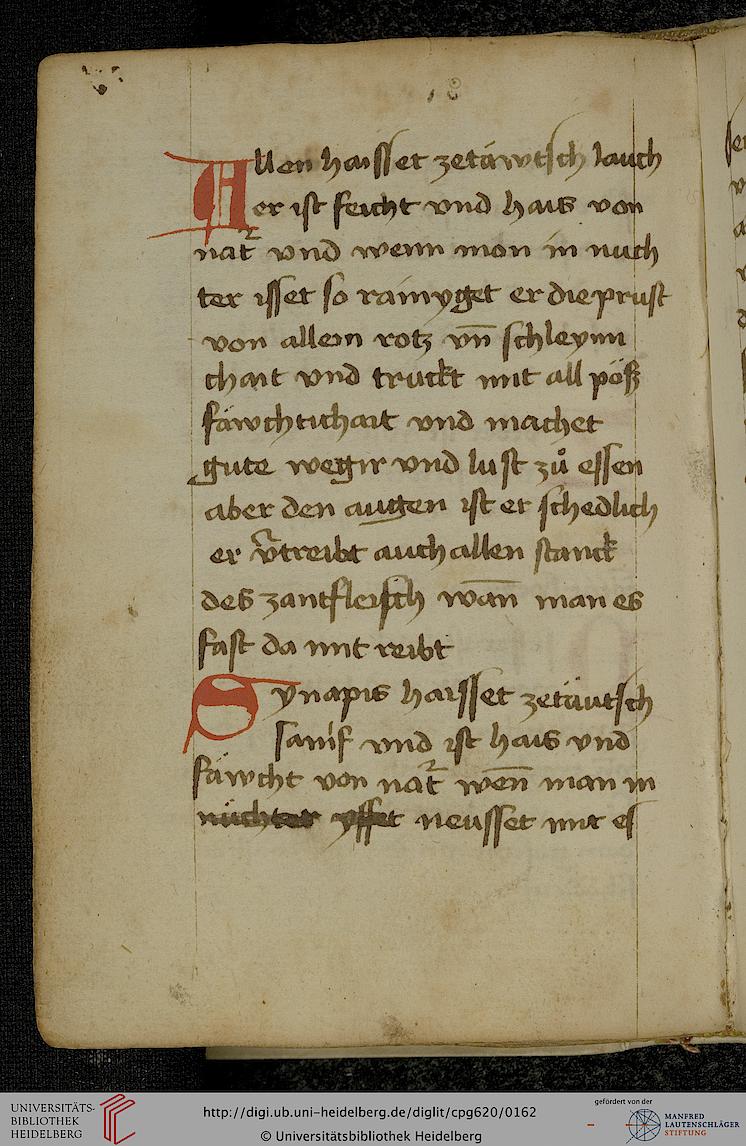 Allen haisset zetäwtsch lauch
er ist feicht vnd hais von
nat̉ vnd wenn mon in nuch
ter isset so raimyget er die prust
von allem rotz vn̄ schleym
chait vnd truckt mit all pöß
fäwchtichait vnd machet
gute wegir vnd lust zů essen
aber den augen ist er schedlich
er v̉treibt auch allen stanck
des zantfleisch wan̄ man es
fast da mit reibt
Synapis haisset zetäutsch
sanif vnd ist hais vnd
fäwcht von nat̉ wen̄ man in
nüchter ysset neusset mit es
UNIVERSITÄTS-
BIBLIOTHEK
HEIDELBERG
http://digi.ub.uni-heidelberg.de/diglit/cpg620/0162
© Universitätsbibliothek Heidelberg
gefördert von der
MANFRED
LAUTENSCHLÄGER
STIFTUNG